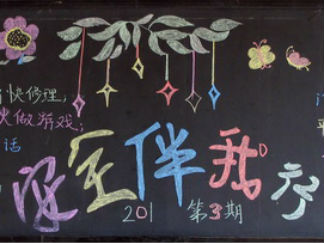 快修理;
火做游戏;
话
安全伴我行
201 第3期